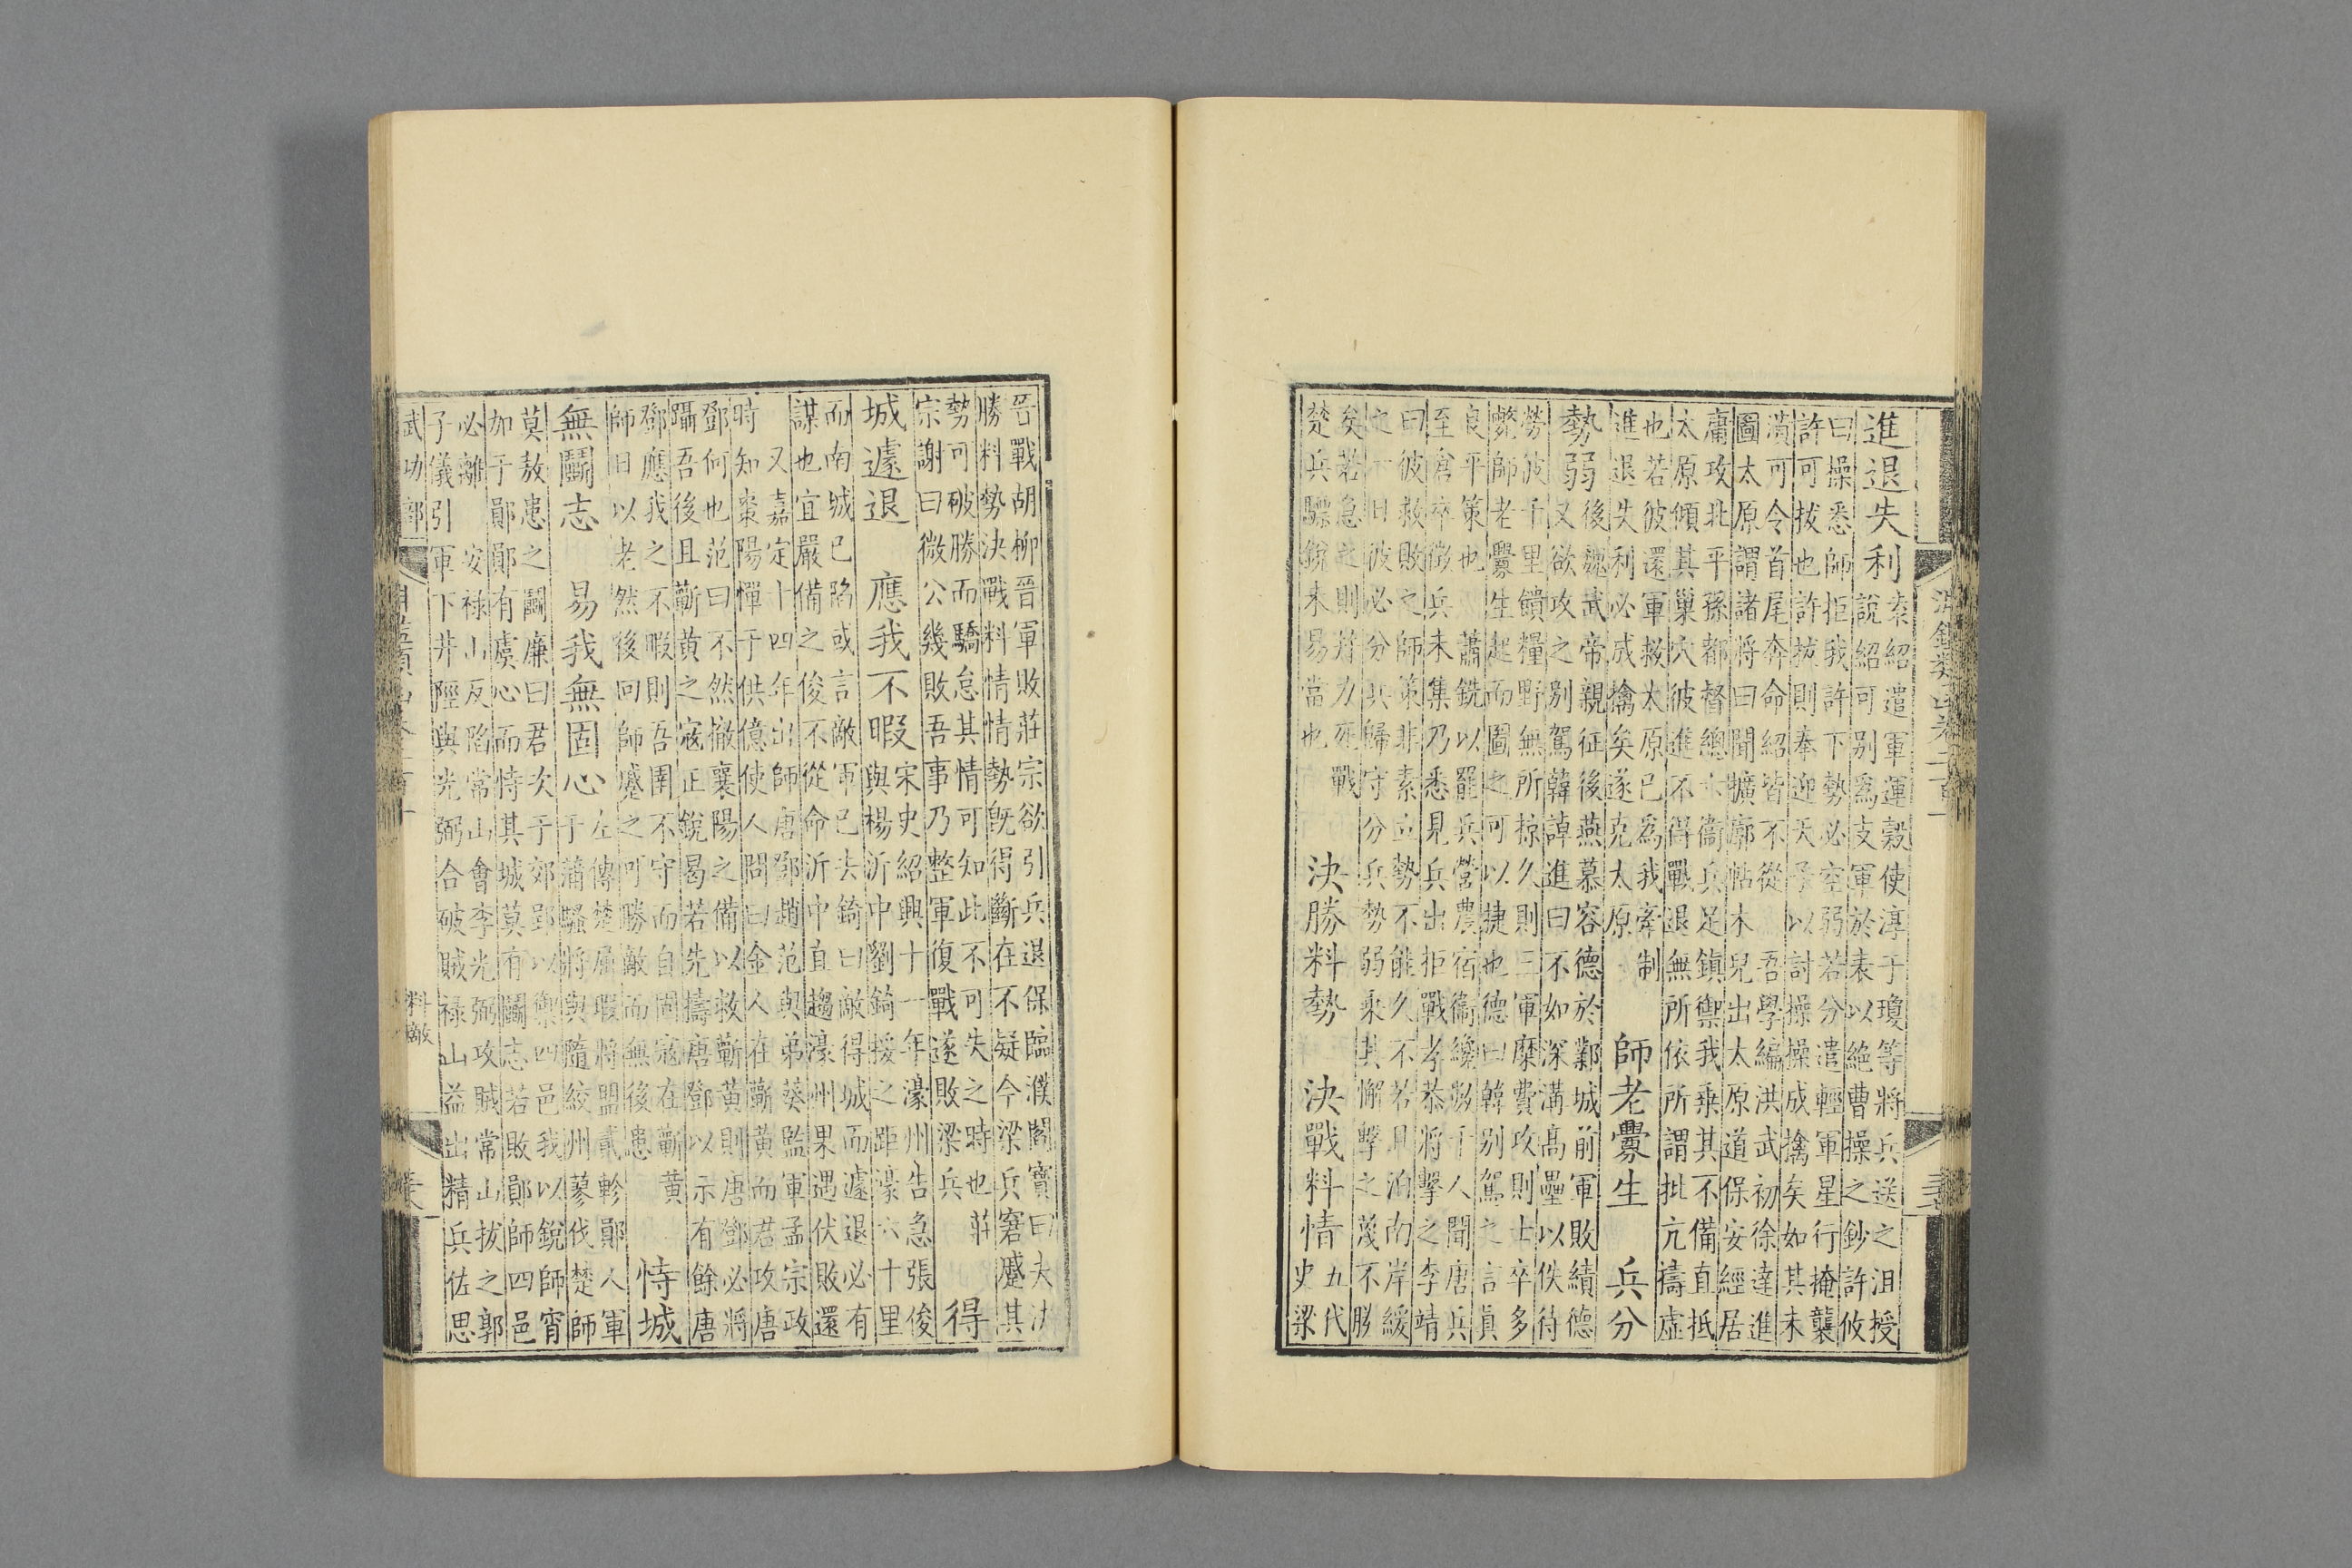 淵鑑類函卷二百十
進退失利
袁紹遣軍運穀使淳于瓊等將兵送之沮授
說紹可別爲支軍於表以絕曹操之鈔許攸
曰操悉師拒我許下勢必空弱若分遣輕軍星行掩襲
許可拔也許拔則奉迎天子以討操操成擒矣如其未
潰可令首尾奔命紹皆不從 吾學編洪武初徐達進
圖太原謂諸將曰聞擴廓帖木兒出太原道保安經居
庸攻北平孫都督總六衞兵足鎮禦我乘其不備直抵
太原傾其巢穴彼進不得戰退無所依所謂批亢擣虛
也若彼還軍救太原已爲我牽制
進退失利必成擒矣遂克太原
師老釁生 兵分
勢弱
後魏武帝親征後燕慕容德於鄴城前軍敗績德
又欲攻之別駕韓諄進曰不如深溝高壘以佚待
勞彼千里饋糧野無所掠久則三軍糜費攻則士卒多
斃師老釁生起而圖之可以捷也德曰韓別駕之言眞
良平策也 蕭銑以罷兵營農宿衞纔數千人聞唐兵
至倉卒徵兵未集乃悉見兵出拒戰孝恭將擊之李靖
曰彼救敗之師策非素立勢不能久不若且泊南岸緩
之一日彼必分兵歸守分兵勢弱乘其懈擊之蔑不勝
矣若急之則并力死戰
楚兵驃銳未易當也
決勝料勢 決戰料情
五代
史梁
晉戰胡柳晉軍敗莊宗欲引兵退保臨濮閻寶曰夫決
勝料勢決戰料情情勢既得斷在不疑今梁兵窘蹙其
勢可破勝而驕怠其情可知此不可失之時也莊
宗謝曰微公幾敗吾事乃整軍復戰遂敗梁兵
得
城遽退 應我不暇
宋史紹興十一年濠州告急張俊
與楊沂中劉錡援之距濠六十里
而南城已陷或言敵軍已去錡曰敵得城而遽退必有
謀也宜嚴備之俊不從命沂中直趨濠州果遇伏敗還
又嘉定十四年出師唐鄧趙范契弟葵監軍孟宗政
時知棗陽憚于供億使人問曰金人在蘄黃而君攻唐
鄧何也范曰不然撤襄陽之備以救蘄黃則唐鄧必將
躡吾後且蘄黃之寇正銳曷若先擣唐鄧以示有餘唐
鄧應我之不暇則吾圉不守而自固寇在蘄黃
師日以老然後回師蹙之可勝敵而無後患
恃城
無鬭志 易我無固心
左傳楚屈瑕將盟貳軫鄖人軍
于蒲騷將與隨絞州蓼伐楚師
莫敖患之鬭廉曰君次于郊郢以禦四邑我以銳師宵
加于鄖鄖有虞心而恃其城莫有鬭志若敗鄖師四邑
必離 安祿山反陷常山會李光弼攻賊常山拔之郭
子儀引軍下井陘與光弼合破賊祿山益出精兵佐思
武功部
料敵